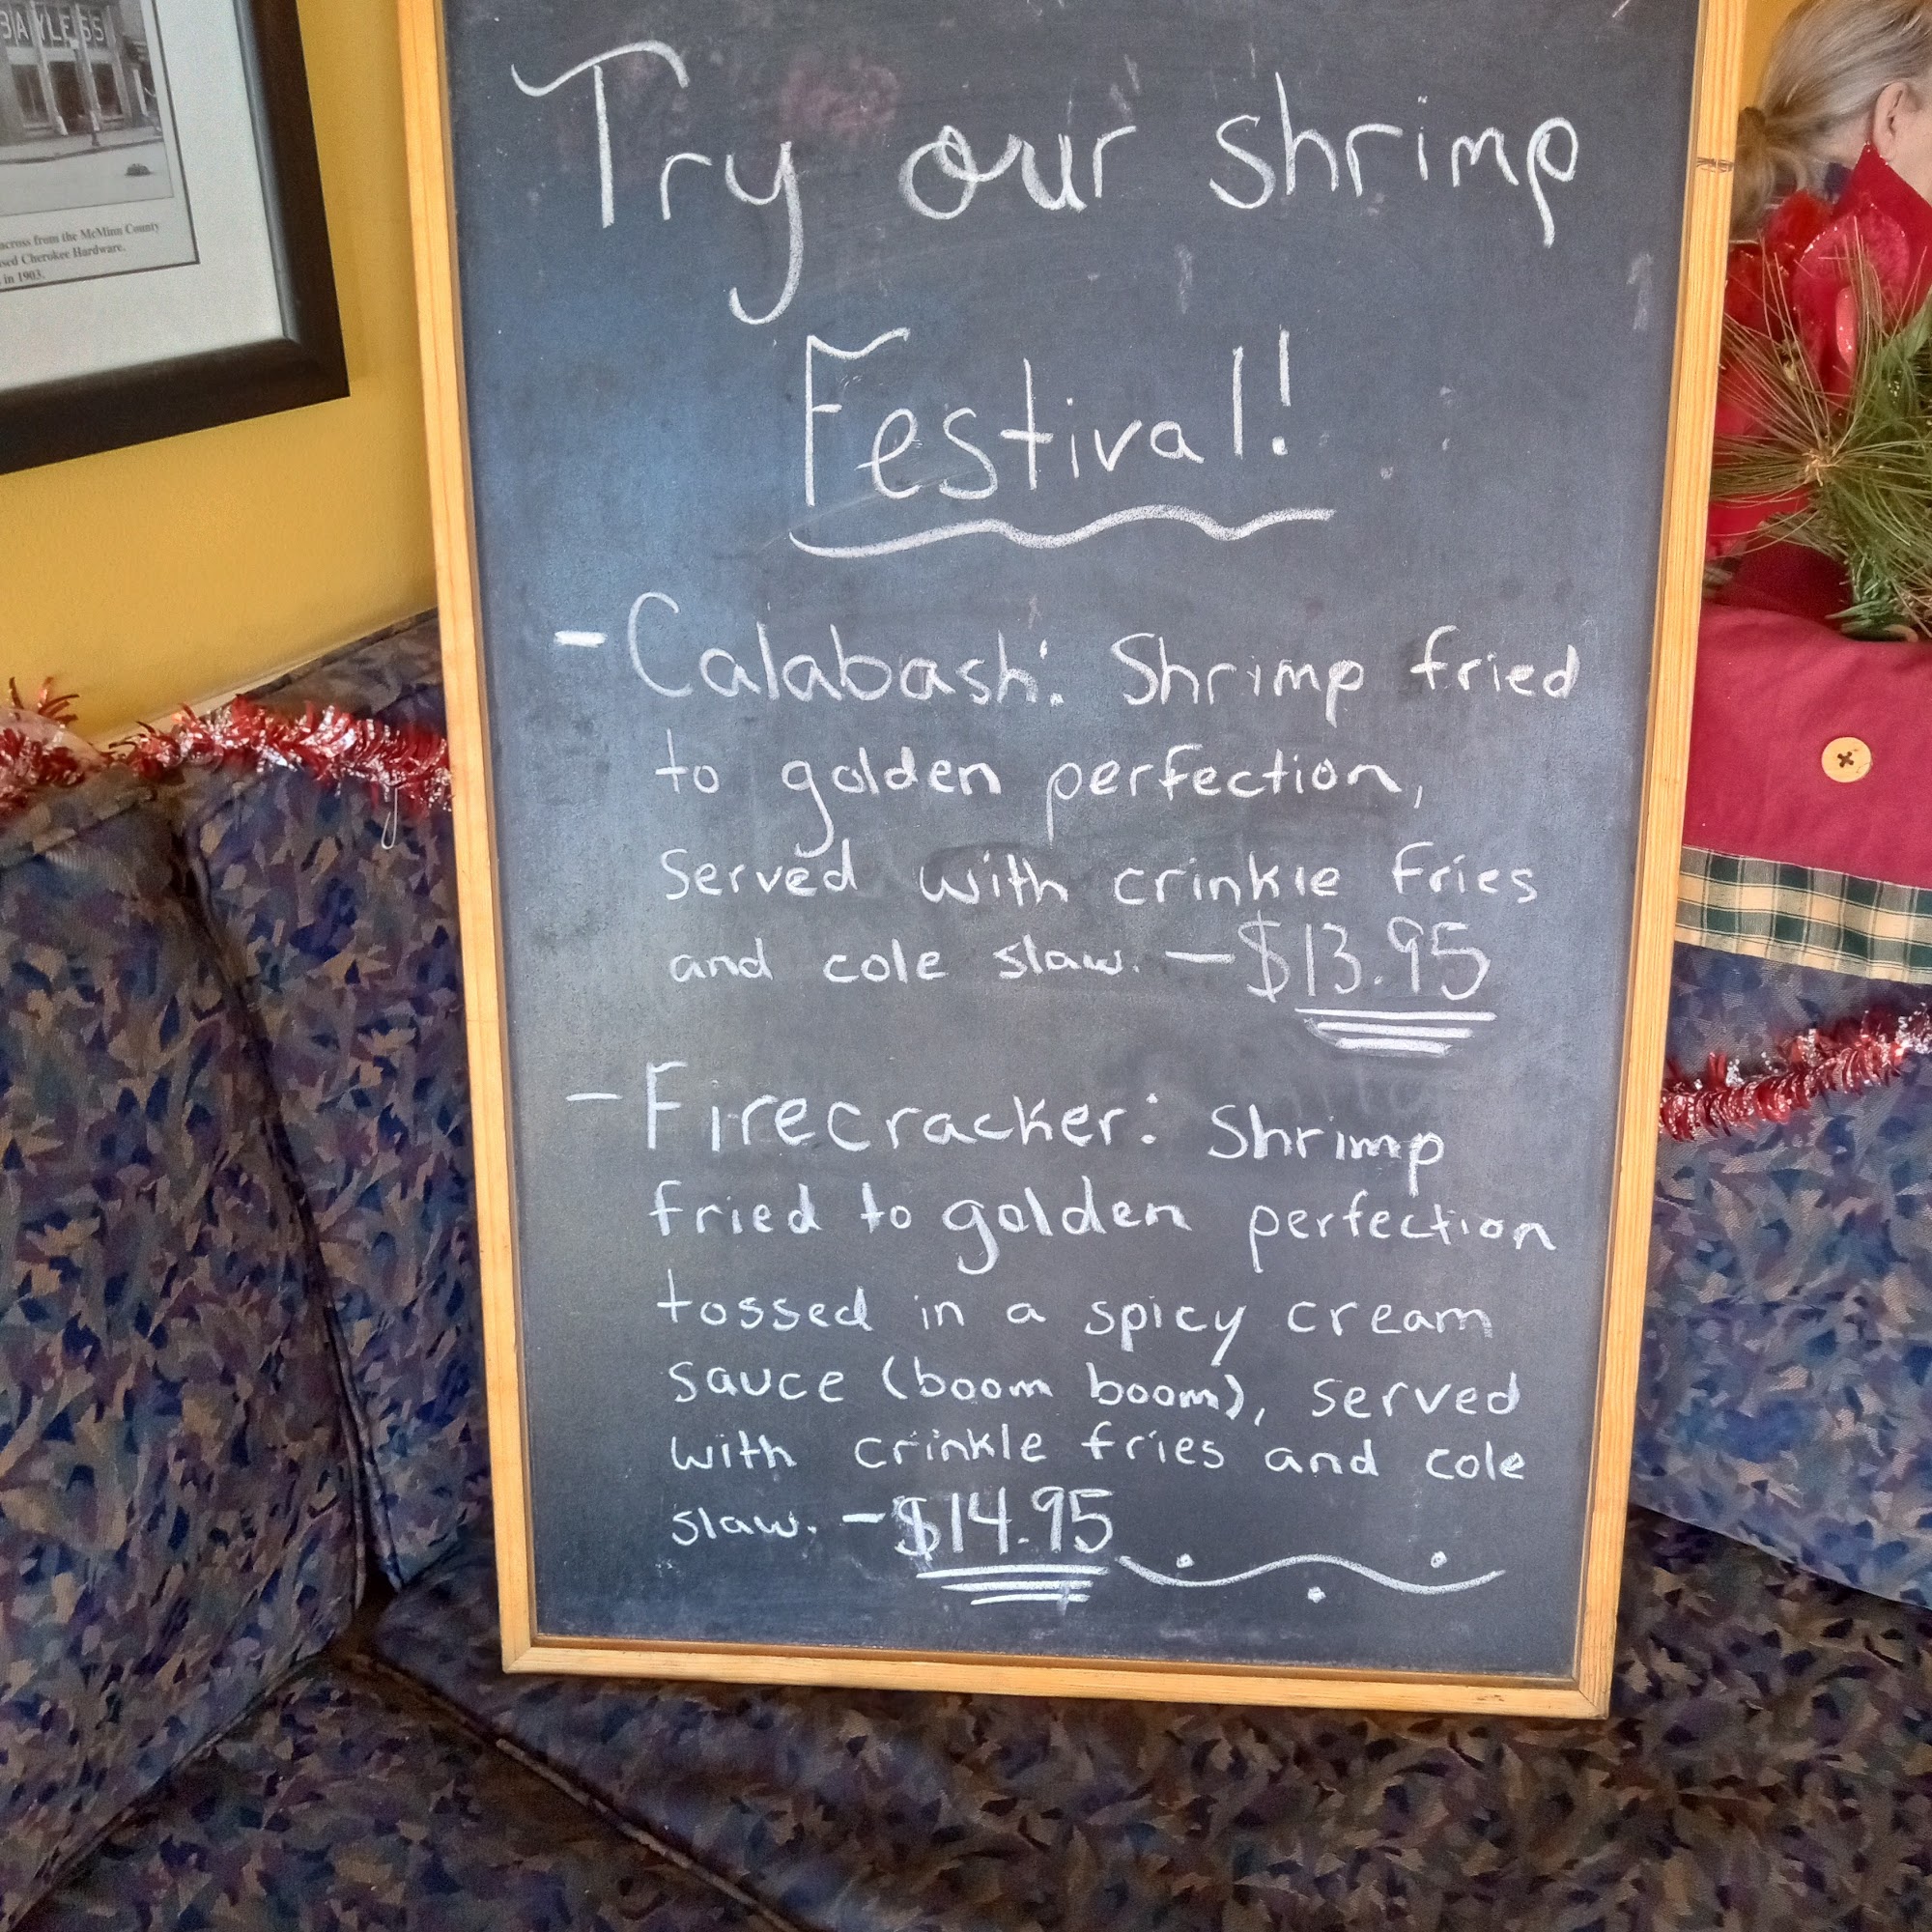 BAYLESS
across from the McMinn County
Cherokee Hardware.
in 1903.
Try our shrimp
Festival!
- Calabash: Shrimp fried
to golden perfection,
served with crinkle fries
and cole slaw. - $13.95
- Firecracker: Shrimp
fried to golden perfection
tossed in a spicy cream
sauce (boom boom), served
with crinkle fries and cole
slaw. - $14.95